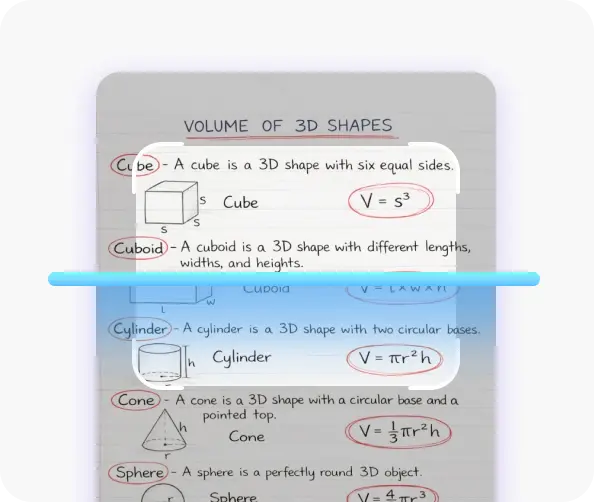 VOLUME OF 3D SHAPES
Cube - A cube is a 3D shape with six equal sides.
s
Cube
V = s³
s
s
Cuboid - A cuboid is a 3D shape with different lengths,
widths, and heights.
Cuboid
V = l x w x h
w
l
Cylinder - A cylinder is a 3D shape with two circular bases.
h
Cylinder
V = πr²h
Cone - A cone is a 3D shape with a circular base and a
pointed top.
h
Cone
V = 1/3 πr²h
r
Sphere - A sphere is a perfectly round 3D object.
r
Sphere
V = 4/3 πr³